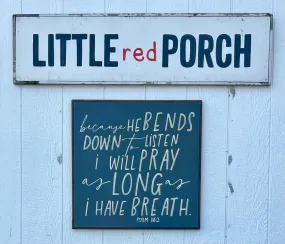 LITTLE red PORCH
because HE BENDS
DOWN to LISTEN
i WILL PRAY
as LONG as
i HAVE BREATH.
PSALM 116:2